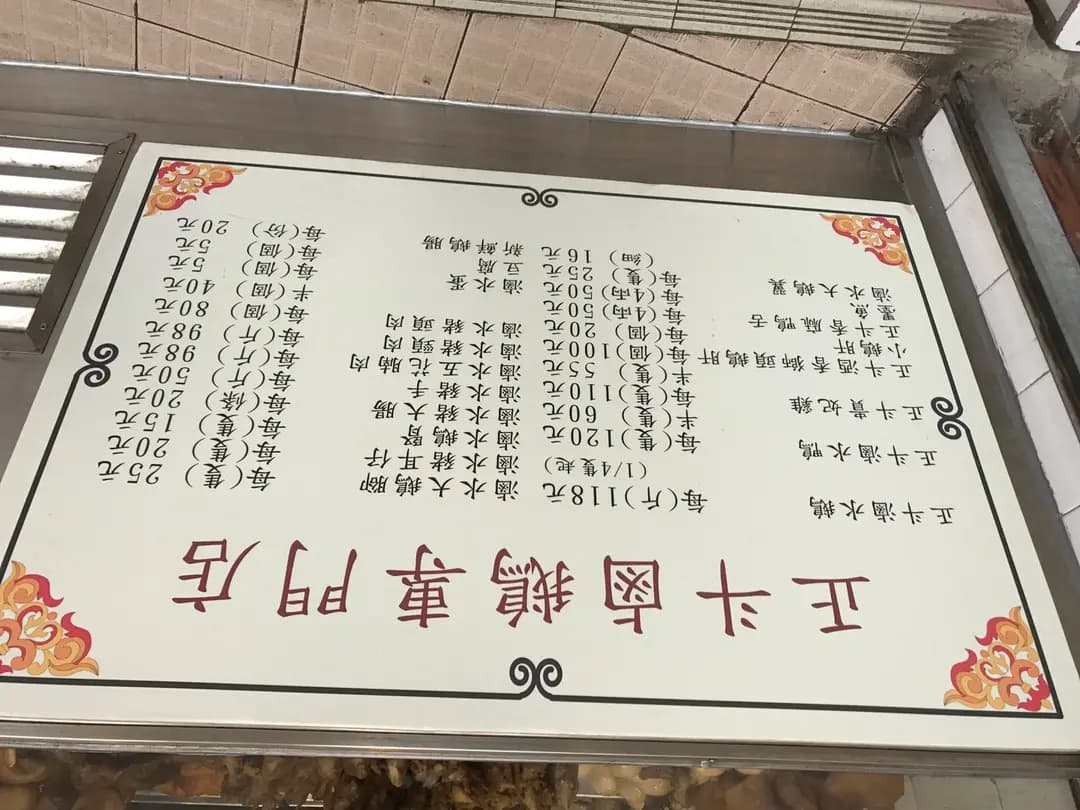 正斗鹵鵝專門店
正斗滷水鵝 每(斤)118元
(1/4隻起)
正斗滷水鴨 每(隻)120元
半(隻) 60元
正斗貴妃雞 每(隻)110元
半(隻) 55元
正斗酒香獅頭鵝肝 每(個)100元
小鵝肝 每(個) 20元
正斗香麻鴨舌 每(4両)50元
墨魚 每(4両)50元
滷水大鵝翼 每(隻) 25元
(細) 16元
滷水大鵝腳 每(隻) 25元
滷水豬耳仔 每(隻) 20元
滷水鵝腎 每(隻) 15元
滷水豬大腸 每(條) 20元
滷水豬手 每(斤) 50元
滷水五花腩肉 每(斤) 98元
滷水豬頸肉 每(斤) 98元
滷水豬頭肉 每(個) 80元
半(個) 40元
滷水蛋 每(個) 5元
豆腐 每(個) 5元
新鮮鵝腸 每(份) 20元